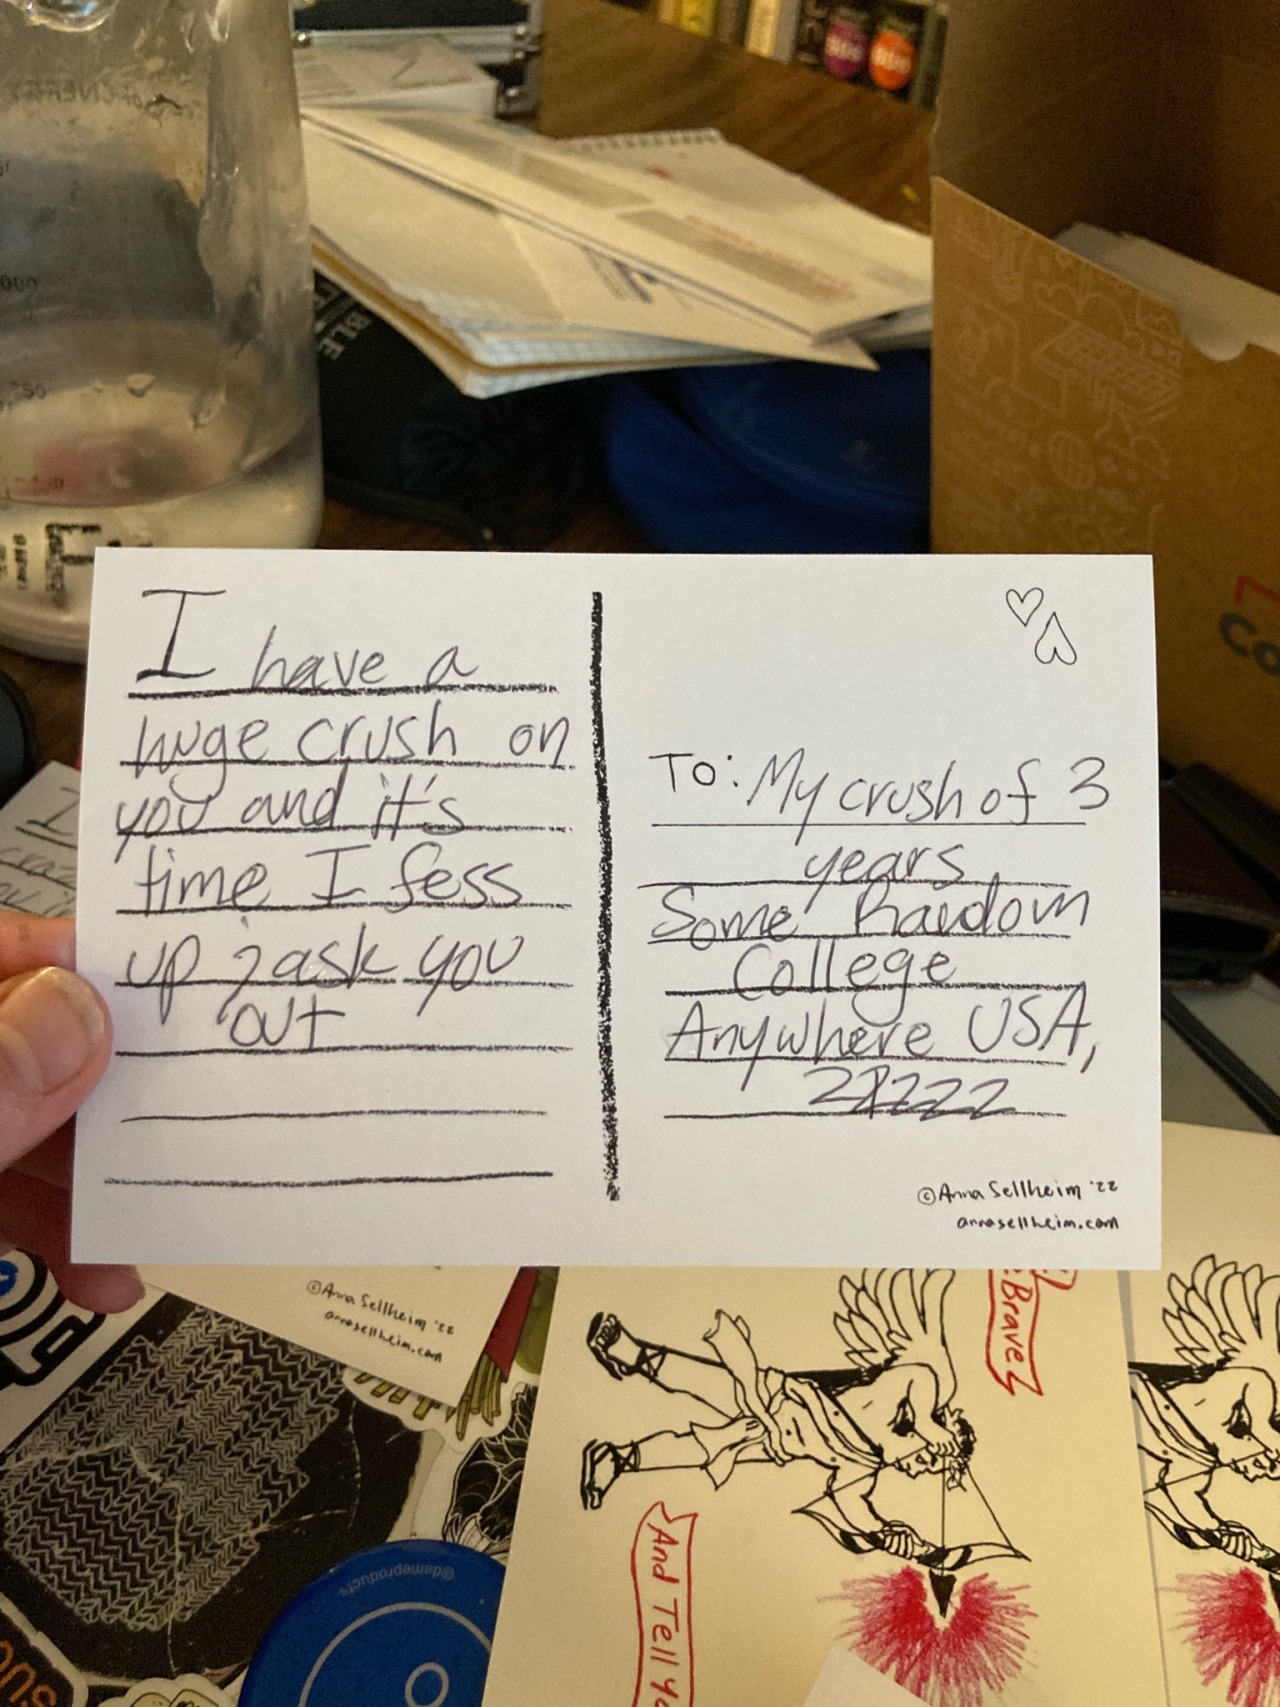 I have a
huge crush on
you and it's
time I fess
up & ask you
out
To: My crush of 3
years
Some Random
College
Anywhere USA,
22222
©Anna Sellheim '22
annasellheim.com
©Anna Sellheim '22
annasellheim.com
Brave
And Tell
@dameproducts
BLE